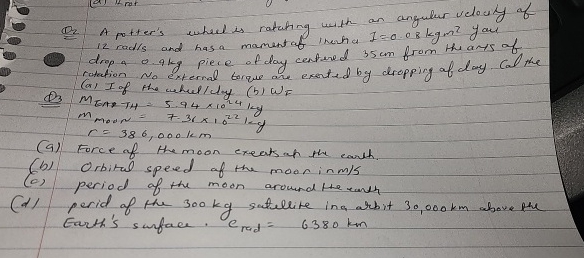 Q2 A potter's wheel is rotating with an angular velocity of
12 rad/s and has a moment of Inertia I=0.08 kgm². You
drop a 0.9kg piece of clay centered 35cm from the axis of
rotation No external torque are exerted by dropping of clay Cal the
(a) I of the wheel/clay (b) WF
Q3 MEARTH = 5.94 x10²⁴ kg
Mmoon = 7.36 x10²² kg
r = 386,000km
(a) Force of the moon exerts on the earth.
(b) Orbital speed of the moon in m/s
(c) period of the moon around the earth
(d) period of the 300 kg satellite in a orbit 30,000km above the
Earth's surface. erad = 6380 km